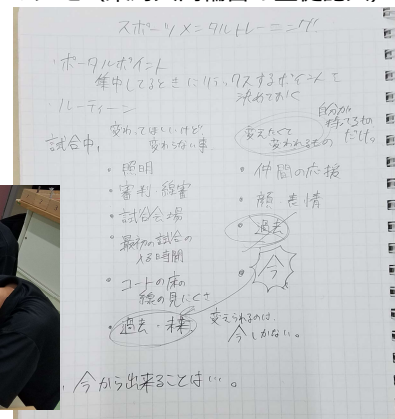 スポーツメンタルトレーニング
・ポータルポイント
集中してるときにリラックスするポイントを
決めておく
ルーティーン
試合中,
変わってほしいけど
変わらない事
・照明
・審判・線審
・試合会場
・最初の試合の
入る時間
・コートの床の
線の見にくさ
・過去・未来
変えたくて
変われるもの
自分が
持てるもの
だけ。
・仲間の応援
・顔 表情
・過去
・今
変えられるのは、
今しかない。
、今から出来ることは…。